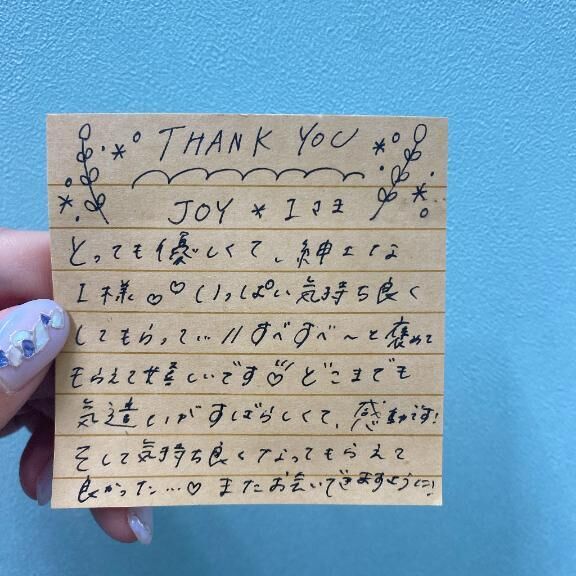 THANK YOU
JOY * Iさま
とっても優しくて、紳士な
I様♡♡いっぱい気持ち良く
してもらって…//すべすべ〜と褒めて
もらえて嬉しいです♡どこまでも
気遣いがすばらしくて、感動です!
そして気持ち良くなってもらえて
良かった…♡またお会いできますように!